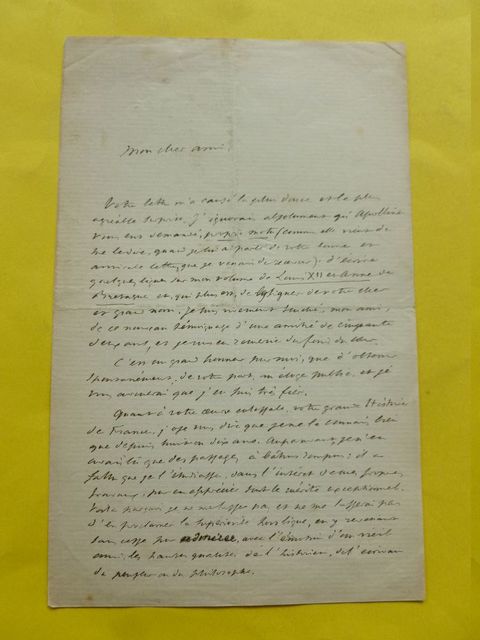 Mon cher ami,
Votre lettre m'a causé la plus douce et la plus
agréable surprise. J'ignorais absolument qu'Apolline
vous eut demandé, proprio motu (comme elle vient de
me le dire, quand je lui ai parlé de votre bonne et
lettre, que je venais de recevoir), d'écrire
quelques lignes sur mon volume de Louis XII et Anne de
Bretagne et, qui plus est, de les signer de votre cher
et grand nom. Je suis vivement touché, mon ami,
de ce nouveau témoignage d'une amitié de cinquante
deux ans, et je vous en remercie du fond du cœur.
C'est un grand honneur pour moi, que d'obtenir
spontanément, de votre part, un éloge public, et je
vous avouerai que j'en suis très fier.
Quant à votre œuvre colossale, votre grande Histoire
de France, j'ose vous dire que je ne la connais bien
que depuis huit ou dix ans. Auparavant je n'en
avais lu que des passages, à bâtons rompus; il a
fallu que je l'étudiasse, dans l'intérêt de mes propres
travaux, pour en apprécier tout le mérite exceptionnel.
Voilà pourquoi je ne me lasse pas, et ne me lasserai pas
d'en proclamer la supériorité hors ligne, en y revenant
sans cesse pour admirer, avec l'émotion d'un vieil
ami, les hautes qualités de l'historien, de l'écrivain
du penseur ou du philosophe.